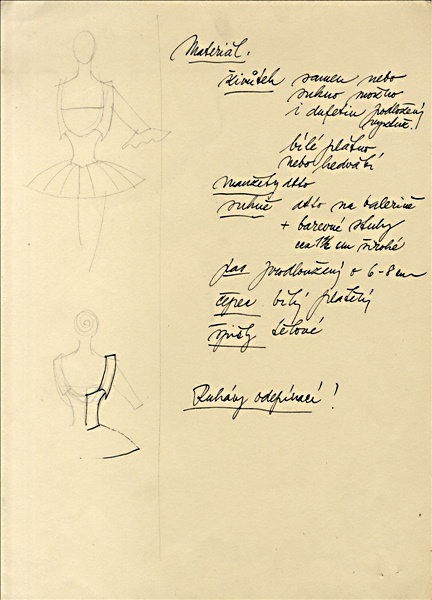 Materiál.
živůtek samen nebo
sukno možno
i dufetin podložený
bílé plátno
nebo hedvábí
manžety dtto
sukně dtto na balerině
+ barevné stuhy
cca 1½ cm široké
pas prodloužený o 6-8 cm
čepec bílý
špisty tělové
Rukávy odepínací!